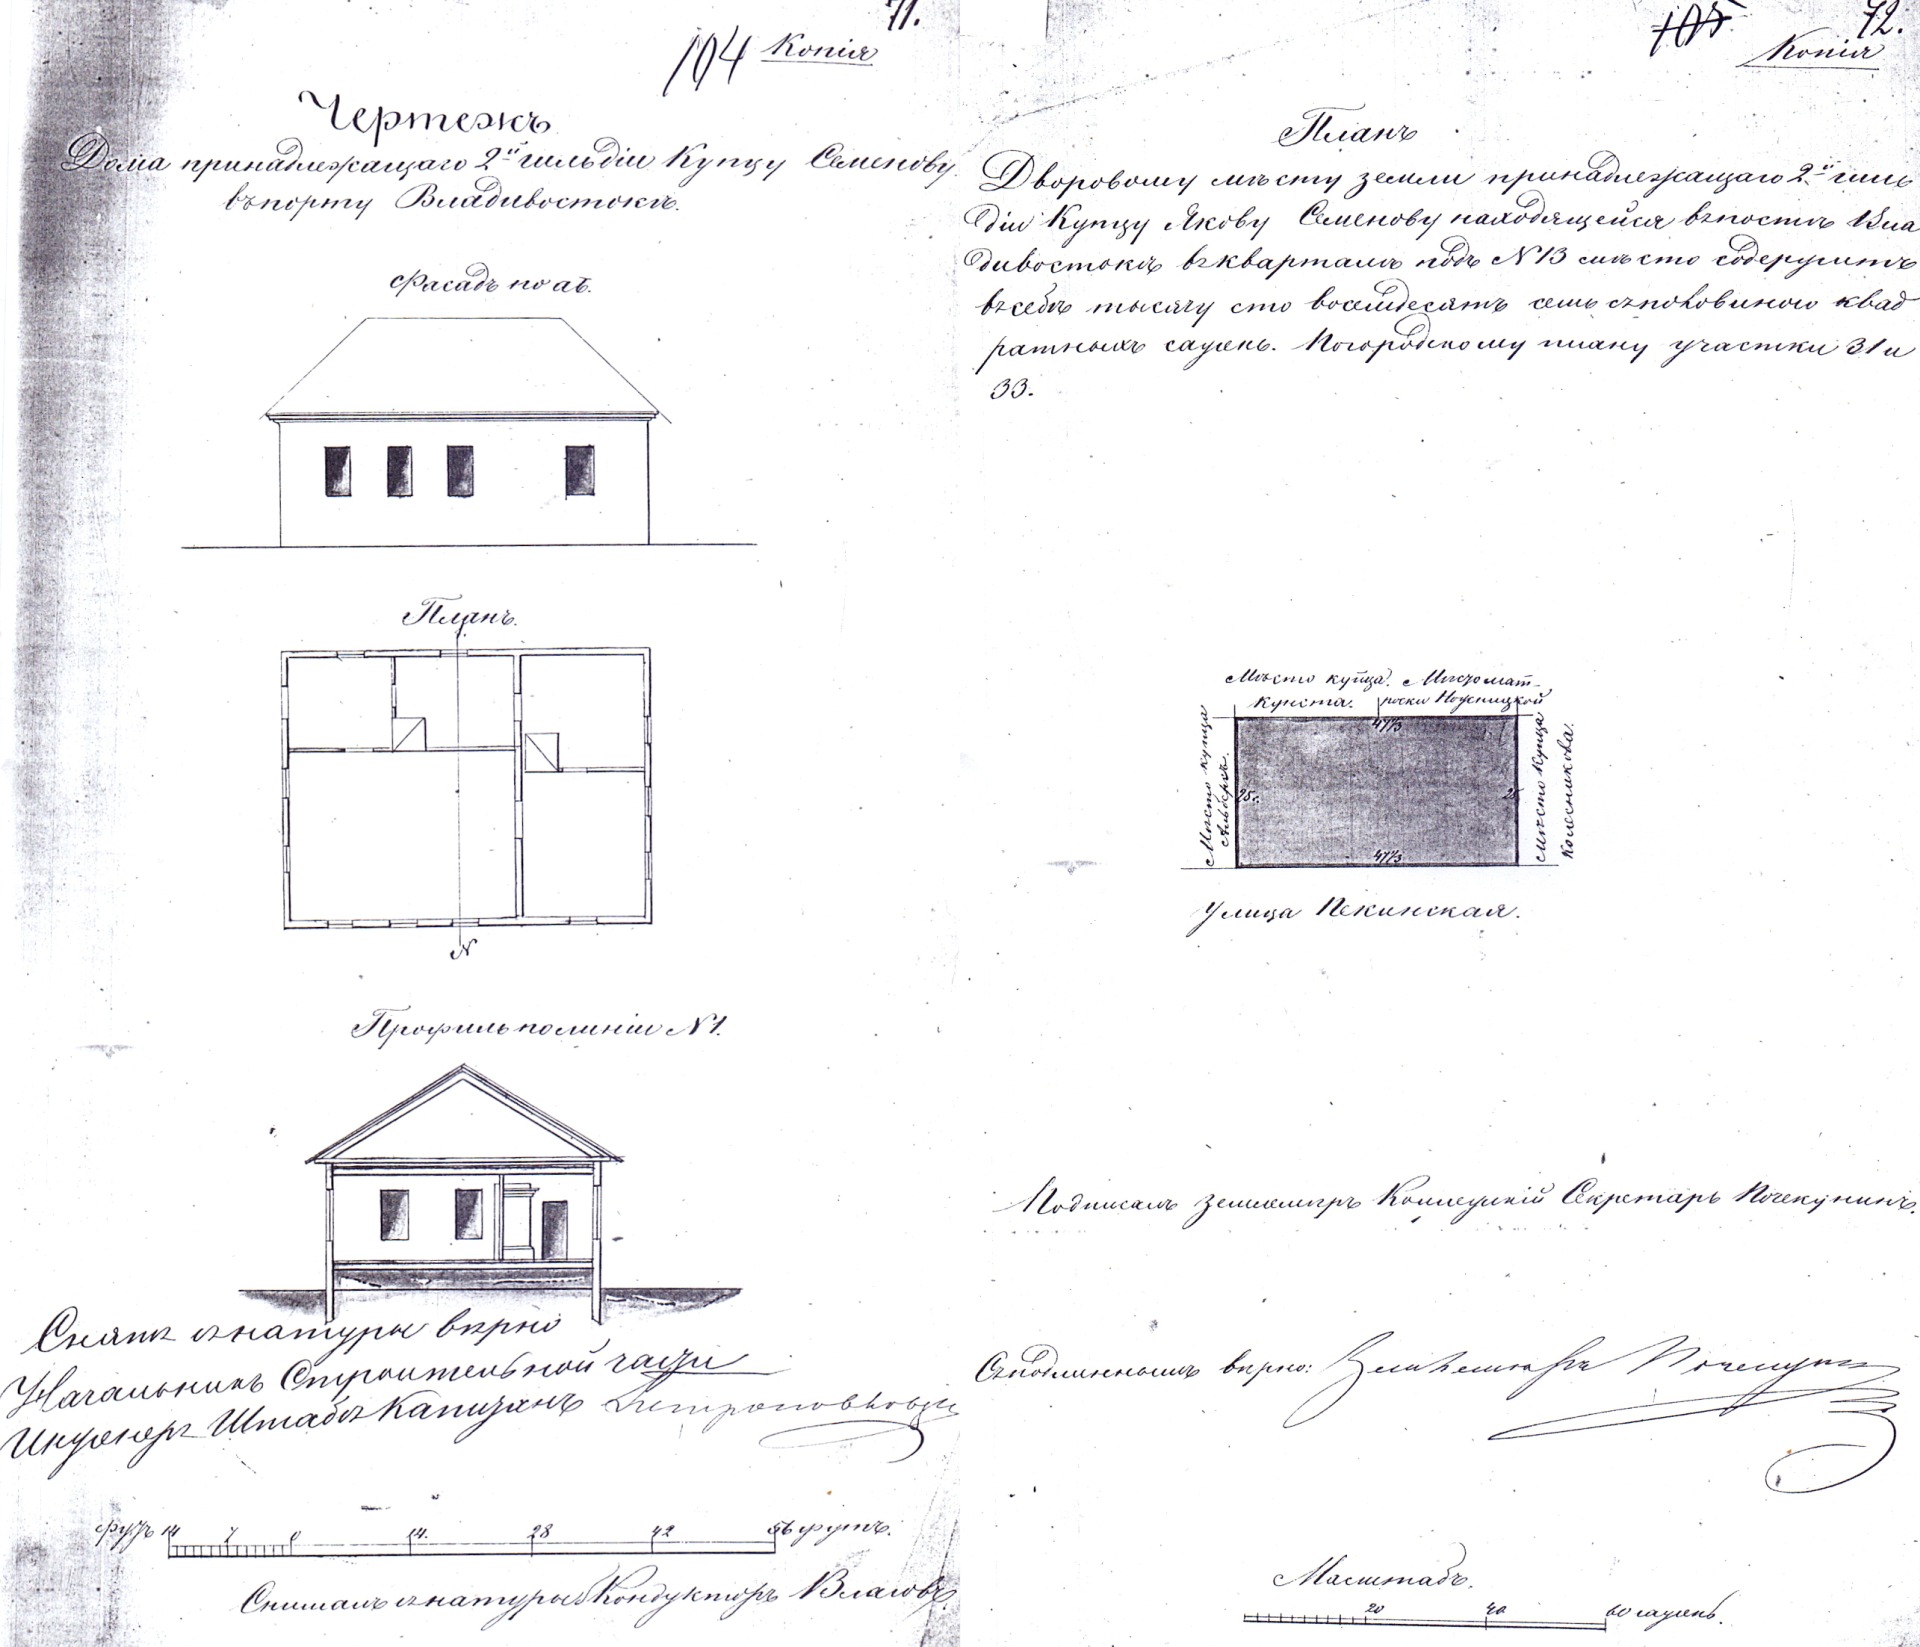 71.
104 Копія
Чертежъ
Дома принадлежащаго 2й гильдіи Купцу Семенову
въ порту Владивостокъ.
Фасадъ по аб.
Планъ.
N
Профиль по линіи N 1.
Снятъ съ натуры верно
Начальникъ Строительной части
Инженеръ Штабсъ Капитанъ
футъ 14 7 0 14. 28 42 56 футъ.
Снималъ съ натуры Кондукторъ Власовъ
105 72.
Копія
Планъ
Дворовому мѣсту земли принадлежащаго 2й гиль
діи Купцу Якову Семенову находящейся въ постѣ Вла
дивостокѣ въ кварталѣ подъ N 13 мѣсто содержитъ
въ себѣ тысячу сто восемдесятъ семь съ половиною квад
ратныхъ сажень. По городскому плану участки 31 и
33.
Мѣсто купца. Мѣсто мат-
Кунста. роски Ноженицкой
47½
Мѣсто купца
Альберсъ.
25с.
25
Мѣсто Купца
Колесникова.
47½
Улица Пекинская.
Подписалъ Землемѣръ Коллежскій Секретарь Почекунинъ.
Съ подлиннымъ верно: Землемѣръ Почекунин
Масштабъ.
20 40 60 сажень.